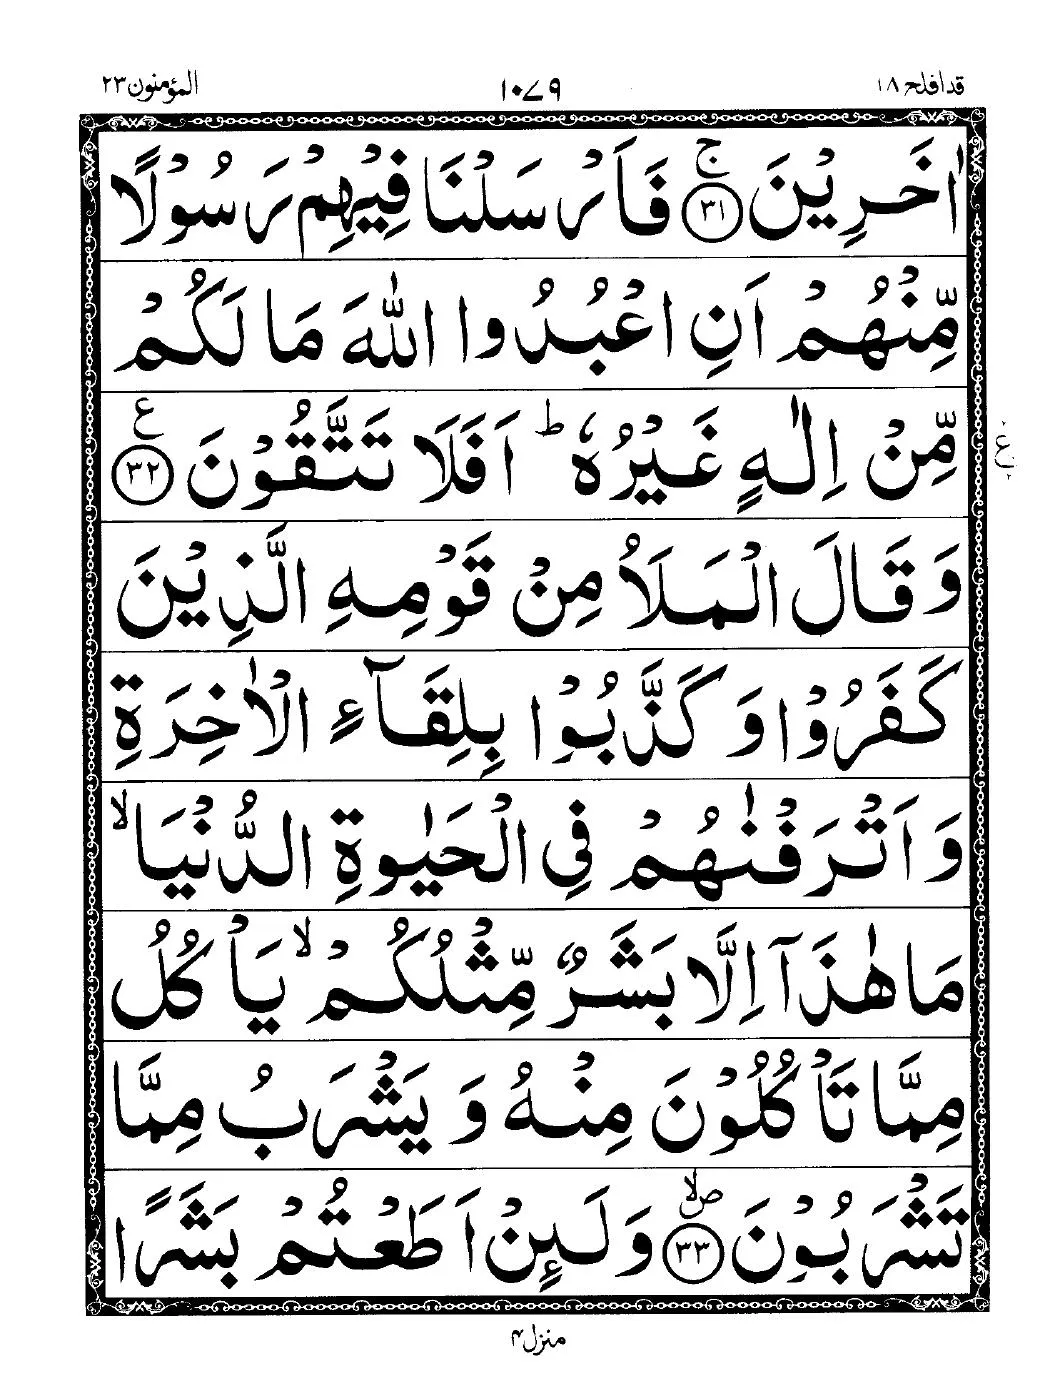 قد افلح ١٨ ١٠٧٩ المؤمنون ٢٣
اٰخَرِيْنَ ۚ ﴿٣١﴾ فَاَرْسَلْنَا فِيْهِمْ رَسُوْلًا
مِّنْهُمْ اَنِ اعْبُدُوا اللّٰهَ مَا لَكُمْ
مِّنْ اِلٰهٍ غَيْرُهٗ ؕ اَفَلَا تَتَّقُوْنَ ﴿٣٢﴾ ع
ع
وَقَالَ الْمَلَاُ مِنْ قَوْمِهِ الَّذِيْنَ
كَفَرُوْا وَكَذَّبُوْا بِلِقَآءِ الْاٰخِرَةِ
وَاَتْرَفْنٰهُمْ فِى الْحَيٰوةِ الدُّنْيَا ۙ
مَا هٰذَآ اِلَّا بَشَرٌ مِّثْلُكُمْ ۙ يَاْكُلُ
مِمَّا تَاْكُلُوْنَ مِنْهُ وَيَشْرَبُ مِمَّا
تَشْرَبُوْنَ ﴿٣٣﴾ صلا وَلَىِٕنْ اَطَعْتُمْ بَشَرًا
منزل ۴